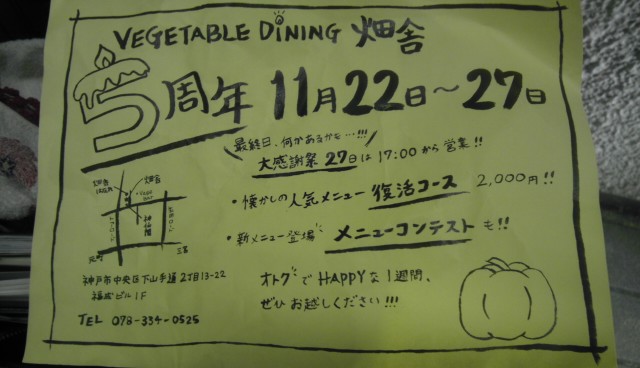 VEGETABLE DINING 畑舎
5周年 11月22日～27日
最終日、何かあるかも…!!!
大感謝祭 27日は 17:00から営業!!
・懐かしの人気メニュー 復活コース 2,000円!!
・新メニュー登場 メニューコンテストも!!
畑舎
元町
三宮
神戸市中央区下山手通2丁目13-22
福成ビル1F
TEL 078-334-0525
オトクでHAPPYな1週間、
ぜひお越しください!!!